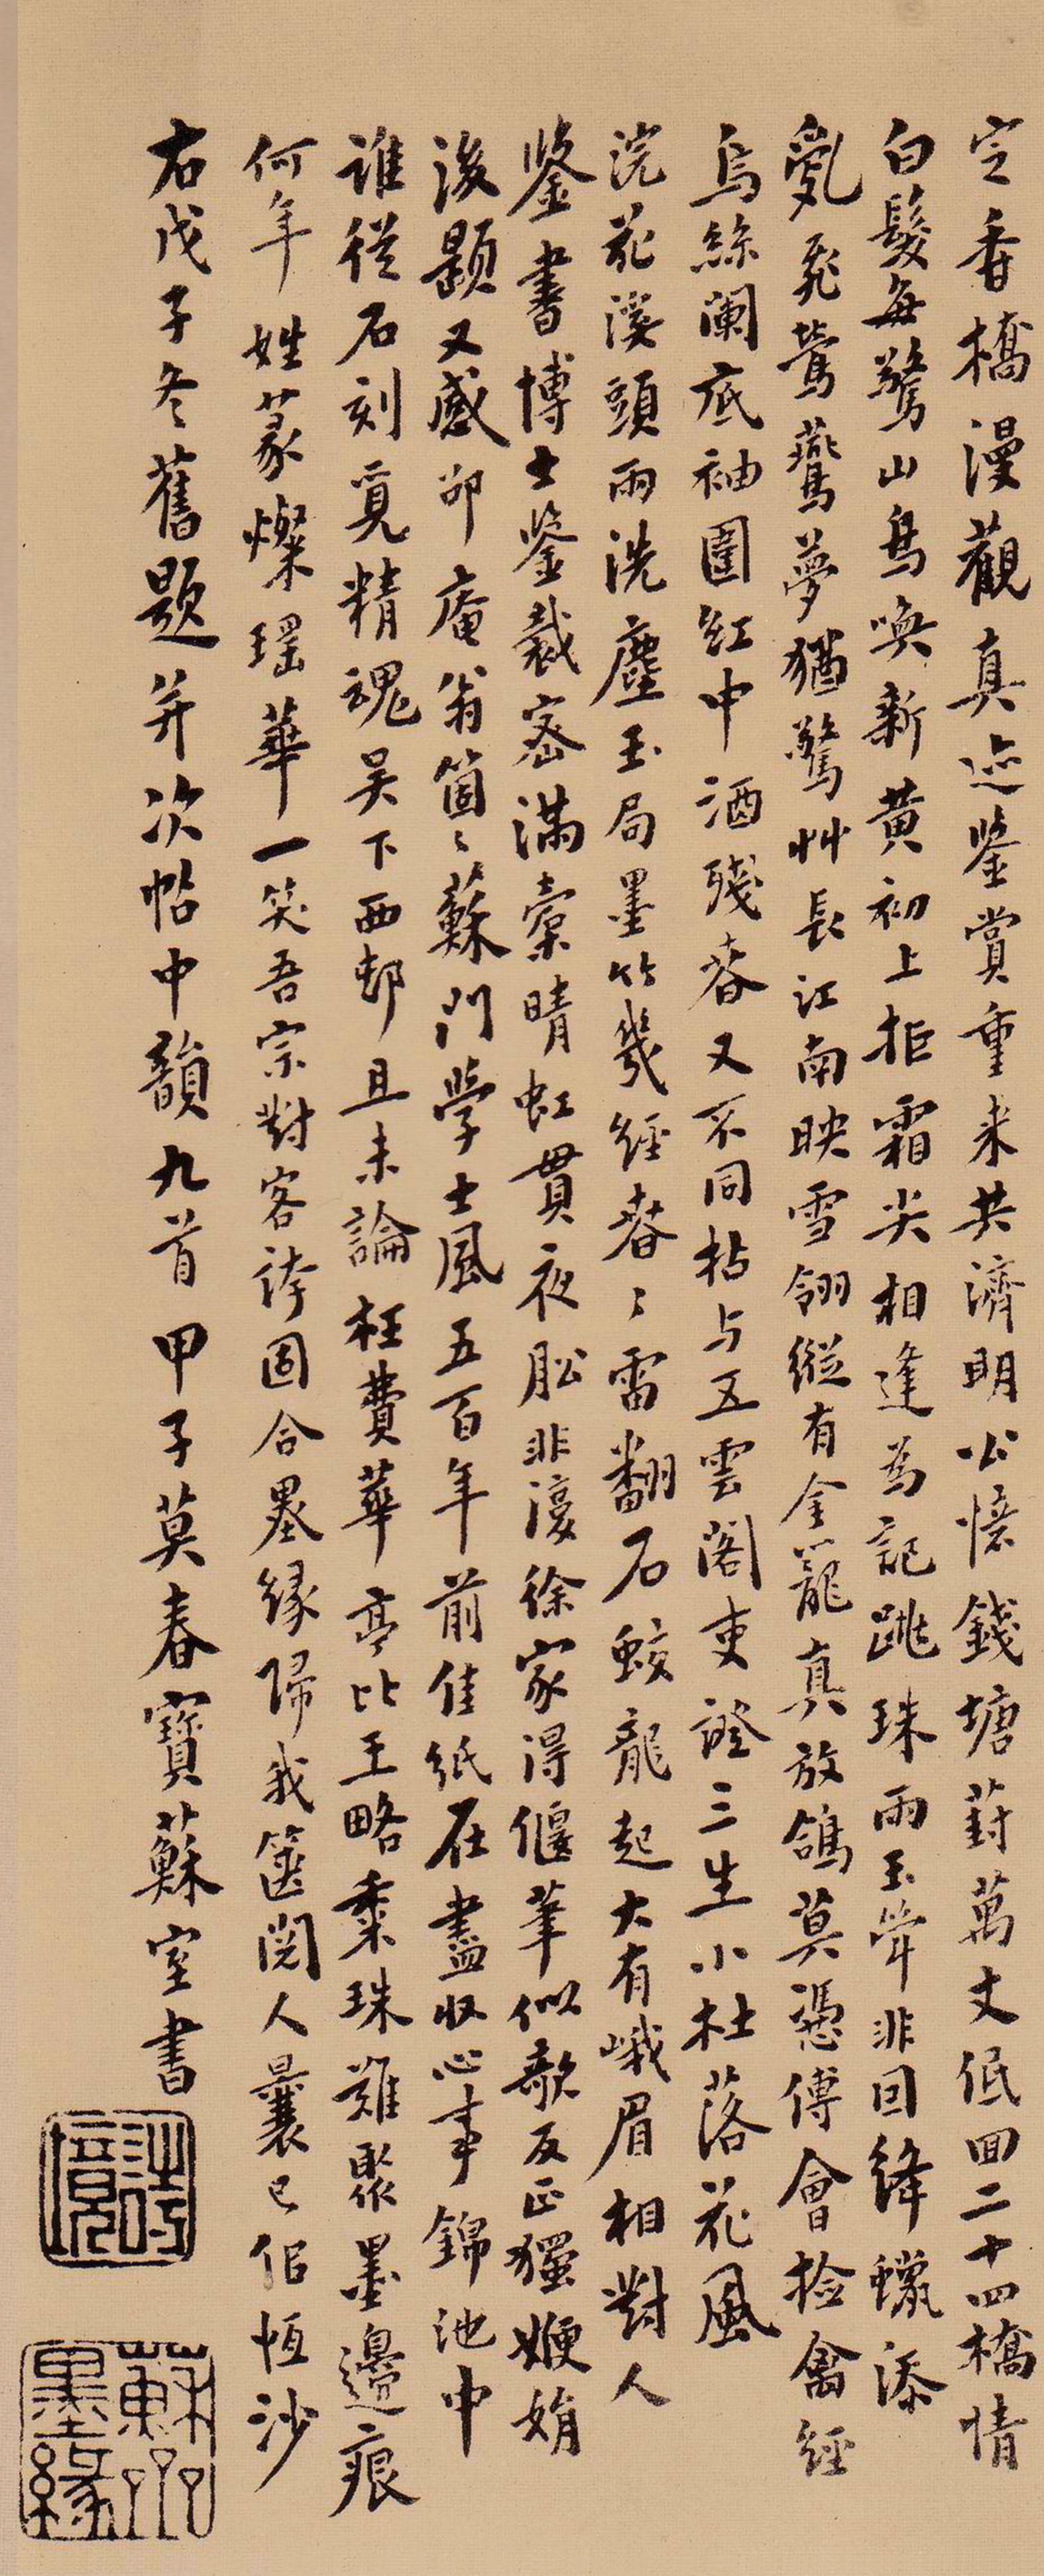 定香橋漫觀真迹鑒賞重来共濟明公憶錢塘葑萬丈低回二十四橋情
白髮每驚山鳥喚新黄初上拒霜尖相逢為記跳珠雨玉堂非回絳蠟添
亂飛鶯燕夢猶驚艸長江南映雪翎縱有金籠真放鴿莫憑傅會捡禽經
烏絲闌底袖圍紅中酒殘春又不同拈与五雲閣吏證三生小杜落花風
浣花溪頭雨洗塵玉局墨竹幾經春々雷翻石蛟龍起大有峨眉相對人
鑒書博士鑒裁密滿橐晴虹貫夜船非濠徐家得偃筆似欹反正獨娟
後題又感邵庵翁箇々蘇門學士風五百年前佳紙在盡收心事錦池中
誰從石刻覓精魂吴下西邨且未論枉費華亭比王略桑珠難聚墨邊痕
何年姓篆燦瑶華一笑吾宗對客誇固合墨緣歸我箧閱人曩已佀恒沙
右戊子冬舊題并次帖中韻九首甲子莫春寶蘇室書
蘇齋墨緣